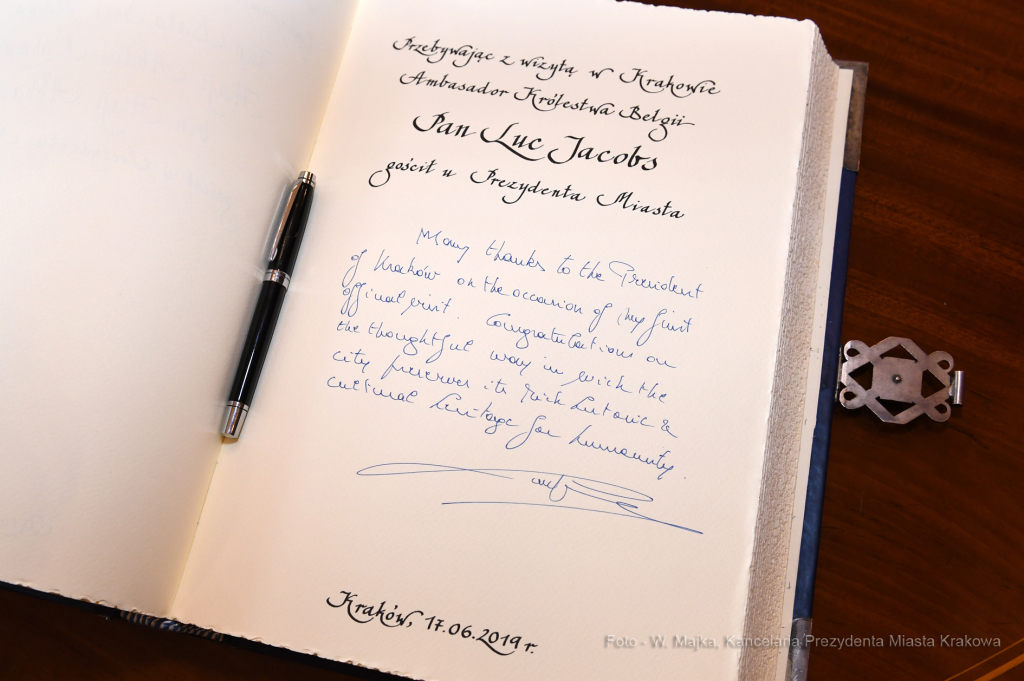 Przebywając z wizytą w Krakowie
Ambasador Królestwa Belgii
Pan Luc Jacobs
gościł u Prezydenta Miasta
Many thanks to the President
of Kraków on the occasion of my first
official visit. Congratulations on
the thoughtful way in wich the
city preserves its rich historic &
cultural heritage for humanity.
Kraków, 17.06.2019 r.
Foto - W. Majka, Kancelaria Prezydenta Miasta Krakowa